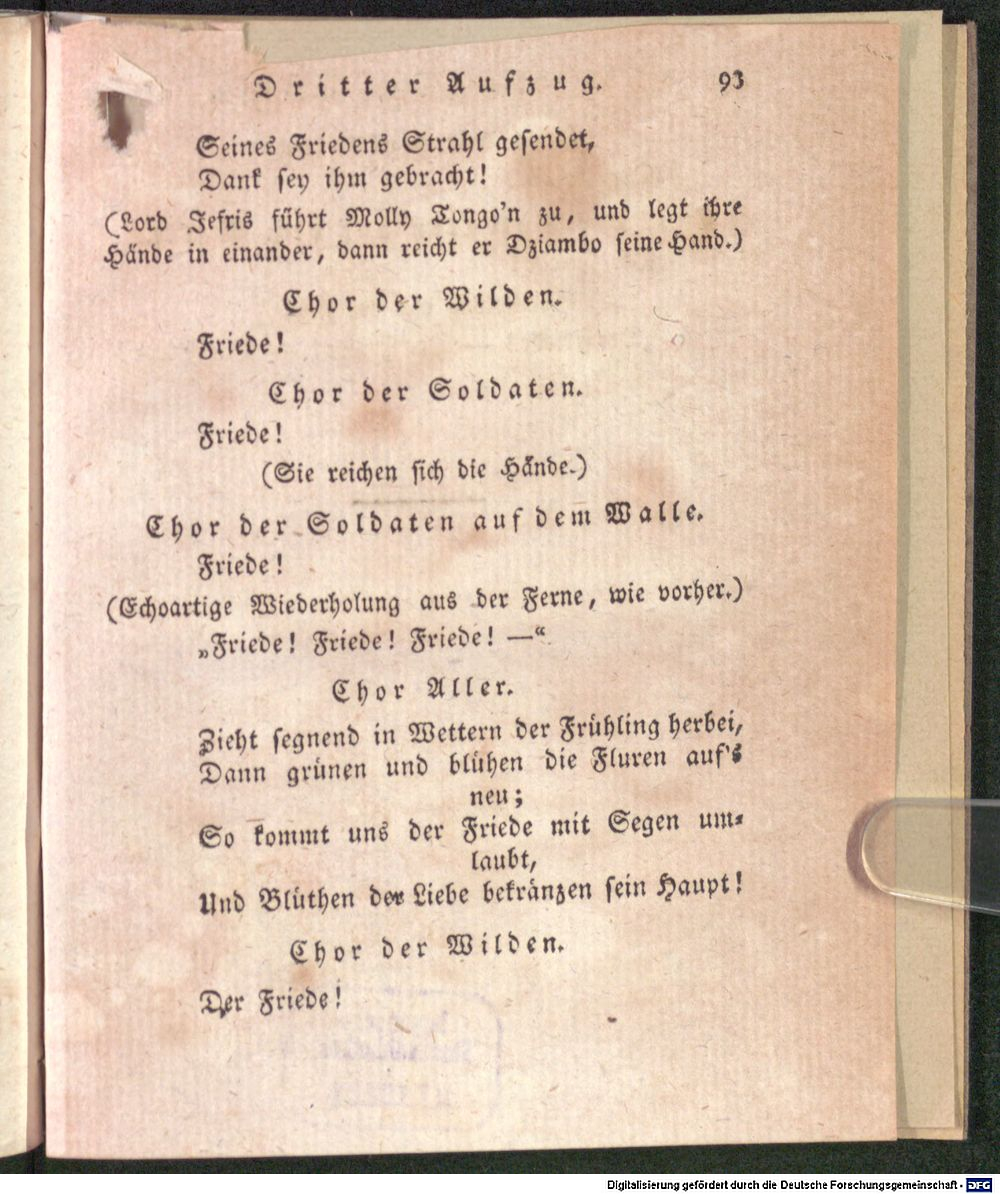 Dritter Aufzug. 93
Seines Friedens Strahl gesendet,
Dank sey ihm gebracht!
(Lord Jefris führt Molly Tongo'n zu, und legt ihre
Hände in einander, dann reicht er Dziambo seine Hand.)
Chor der Wilden.
Friede!
Chor der Soldaten.
Friede!
(Sie reichen sich die Hände.)
Chor der Soldaten auf dem Walle.
Friede!
(Echoartige Wiederholung aus der Ferne, wie vorher.)
„Friede! Friede! Friede! —“
Chor Aller.
Zieht segnend in Wettern der Frühling herbei,
Dann grünen und blühen die Fluren auf's
neu;
So kommt uns der Friede mit Segen um-
laubt,
Und Blüthen der Liebe bekränzen sein Haupt!
Chor der Wilden.
Der Friede!
Digitalisierung gefördert durch die Deutsche Forschungsgemeinschaft - DFG